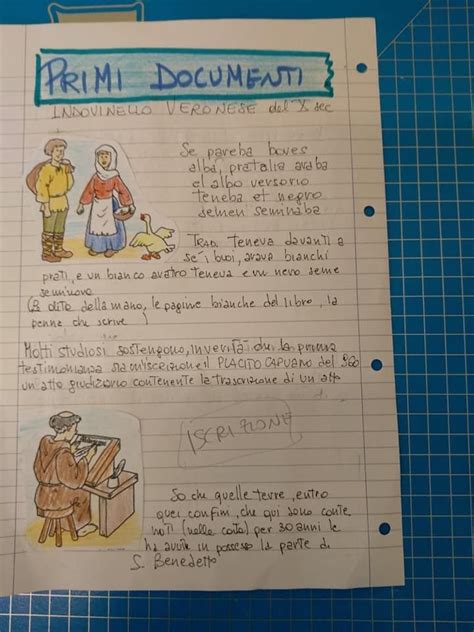 PRIMI DOCUMENTI
INDOVINELLO VERONESE del X sec
Se pareba boves
alba, pratalia araba
el albo versorio
teneba et negro
semen seminaba
TRAD. teneva davanti a
sé i buoi, arava bianchi
prati, e un bianco aratro teneva e un nero seme
seminava
(Le dita della mano, le pagine bianche del libro, la
penna che scrive)
Molti studiosi sostengono, in verità che la prima
testimonianza sia un'iscrizione il PLACITO CAPUANO del 960
un atto giudiziario contenente la trascrizione di un atto
ISCRIZIONE
So che quelle terre, entro
quei confini, che qui sono conte
nuti (nella carta) per 30 anni le
ha avute in possesso la parte di
S. Benedetto